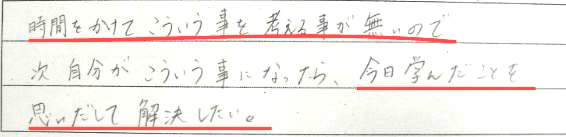 時間をかけてこういう事を考える事が無いので
次自分がこういう事になったら、今日学んだことを
思いだして解決したい。